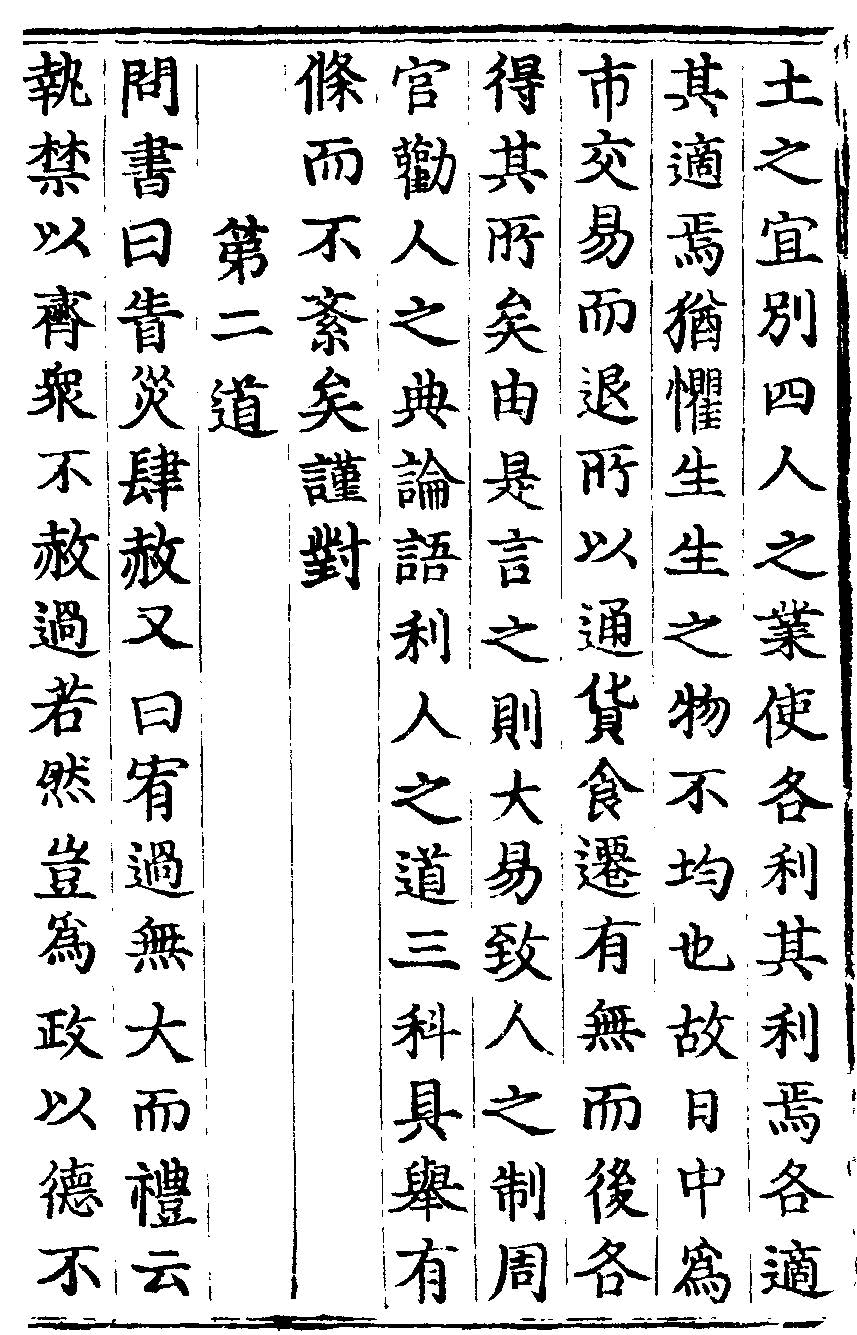 土之宜別四人之業使各利其利焉各適
其適焉猶懼生生之物不均也故日中爲
市交易而退所以通貨食遷有無而後各
得其所矣由是言之則大易致人之制周
官勸人之典論語利人之道三科具舉有
條而不紊矣謹對
第二道
問書曰眚災肆赦又曰宥過無大而禮云
執禁以齊衆不赦過若然豈爲政以德不